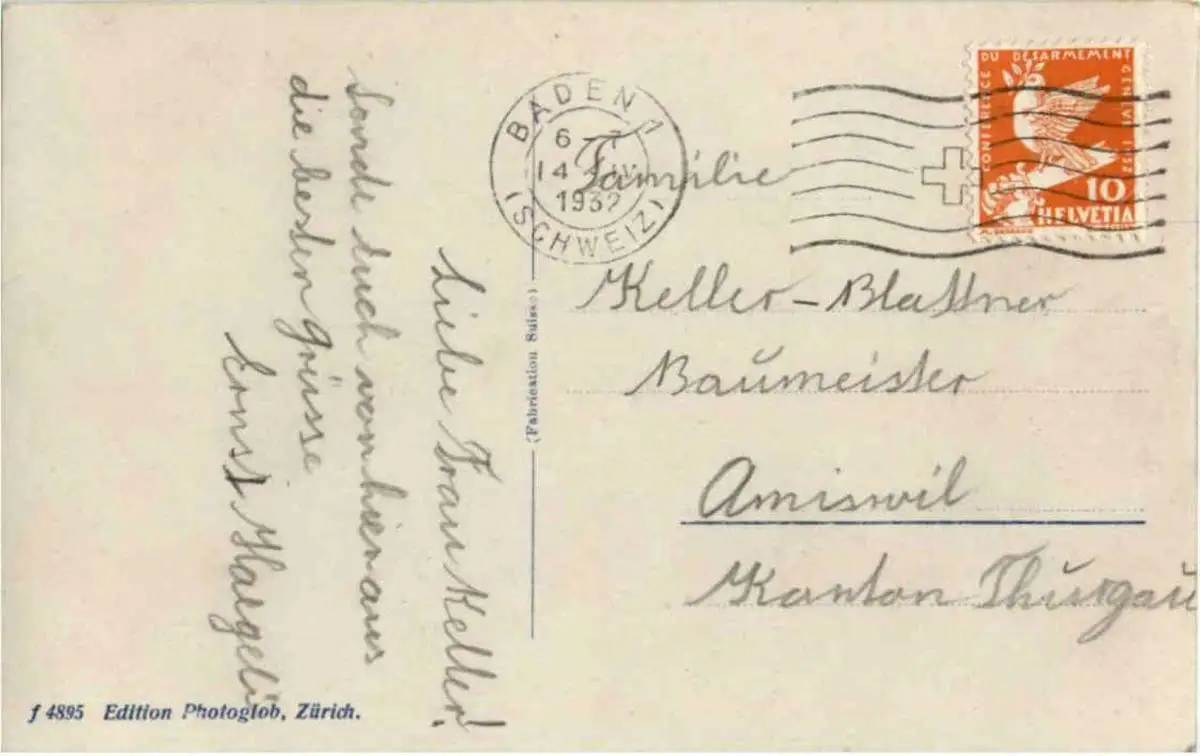 Liebe Frau Keller!
Sende Euch von hier aus
die besten Grüsse
Ernst
(Fabrication Suisse)
BADEN 1
6-7
14. IV.
1932
(SCHWEIZ)
CONFERENCE DU DESARMEMENT GENEVE 1932
10
HELVETIA
Familie
Keller-Blattner
Baumeister
Amiswil
Kanton Thurgau
f 4895 Edition Photoglob, Zürich.